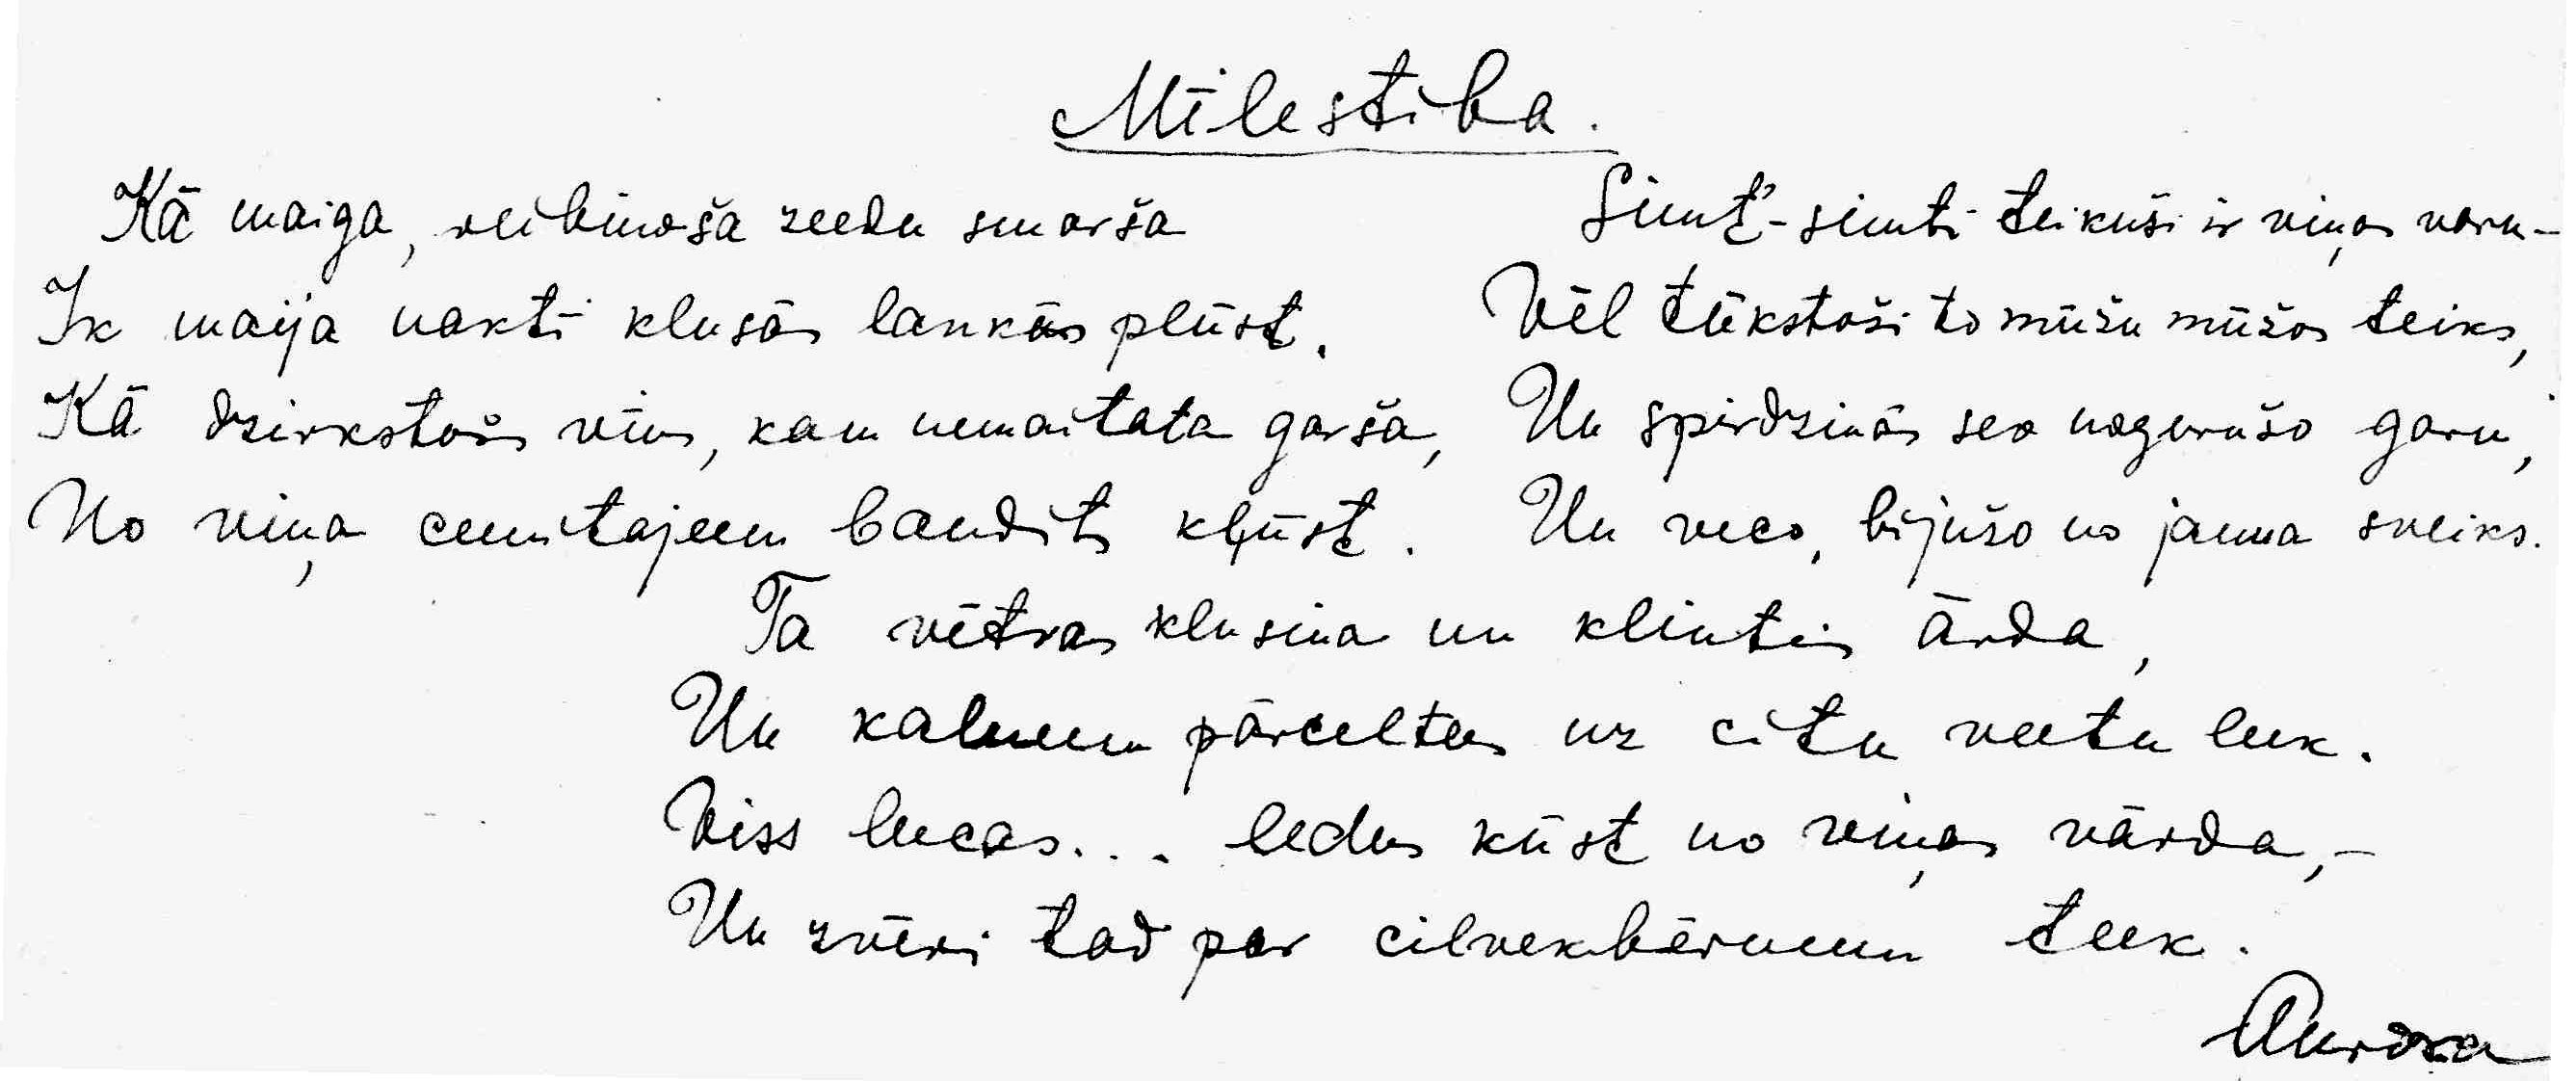 Mīlestība.
Kā maiga, reibinoša zeedu smarša
Ik maija nakti klusās lankās plūst,
Kā dzirkstošs vīns, kam nemaitata garša,
No viņa ceenitajeem baudīts kļūst.
Simt'-simti teikuši ir viņas varu-
Vēl tūkstoši to mūžu mūžos teiks,
Un spirdzinās sev nogurušo garu,
Un vecs, bijušo no jauna sveiks.
Ta vētras klusina un klintis ārda,
Un kalneem pārceltees uz citu veetu leek.
Viss leecas... ledus kūst no viņas vārda,-
Un zvēri tad par cilvekbērneem teek.
Aurora